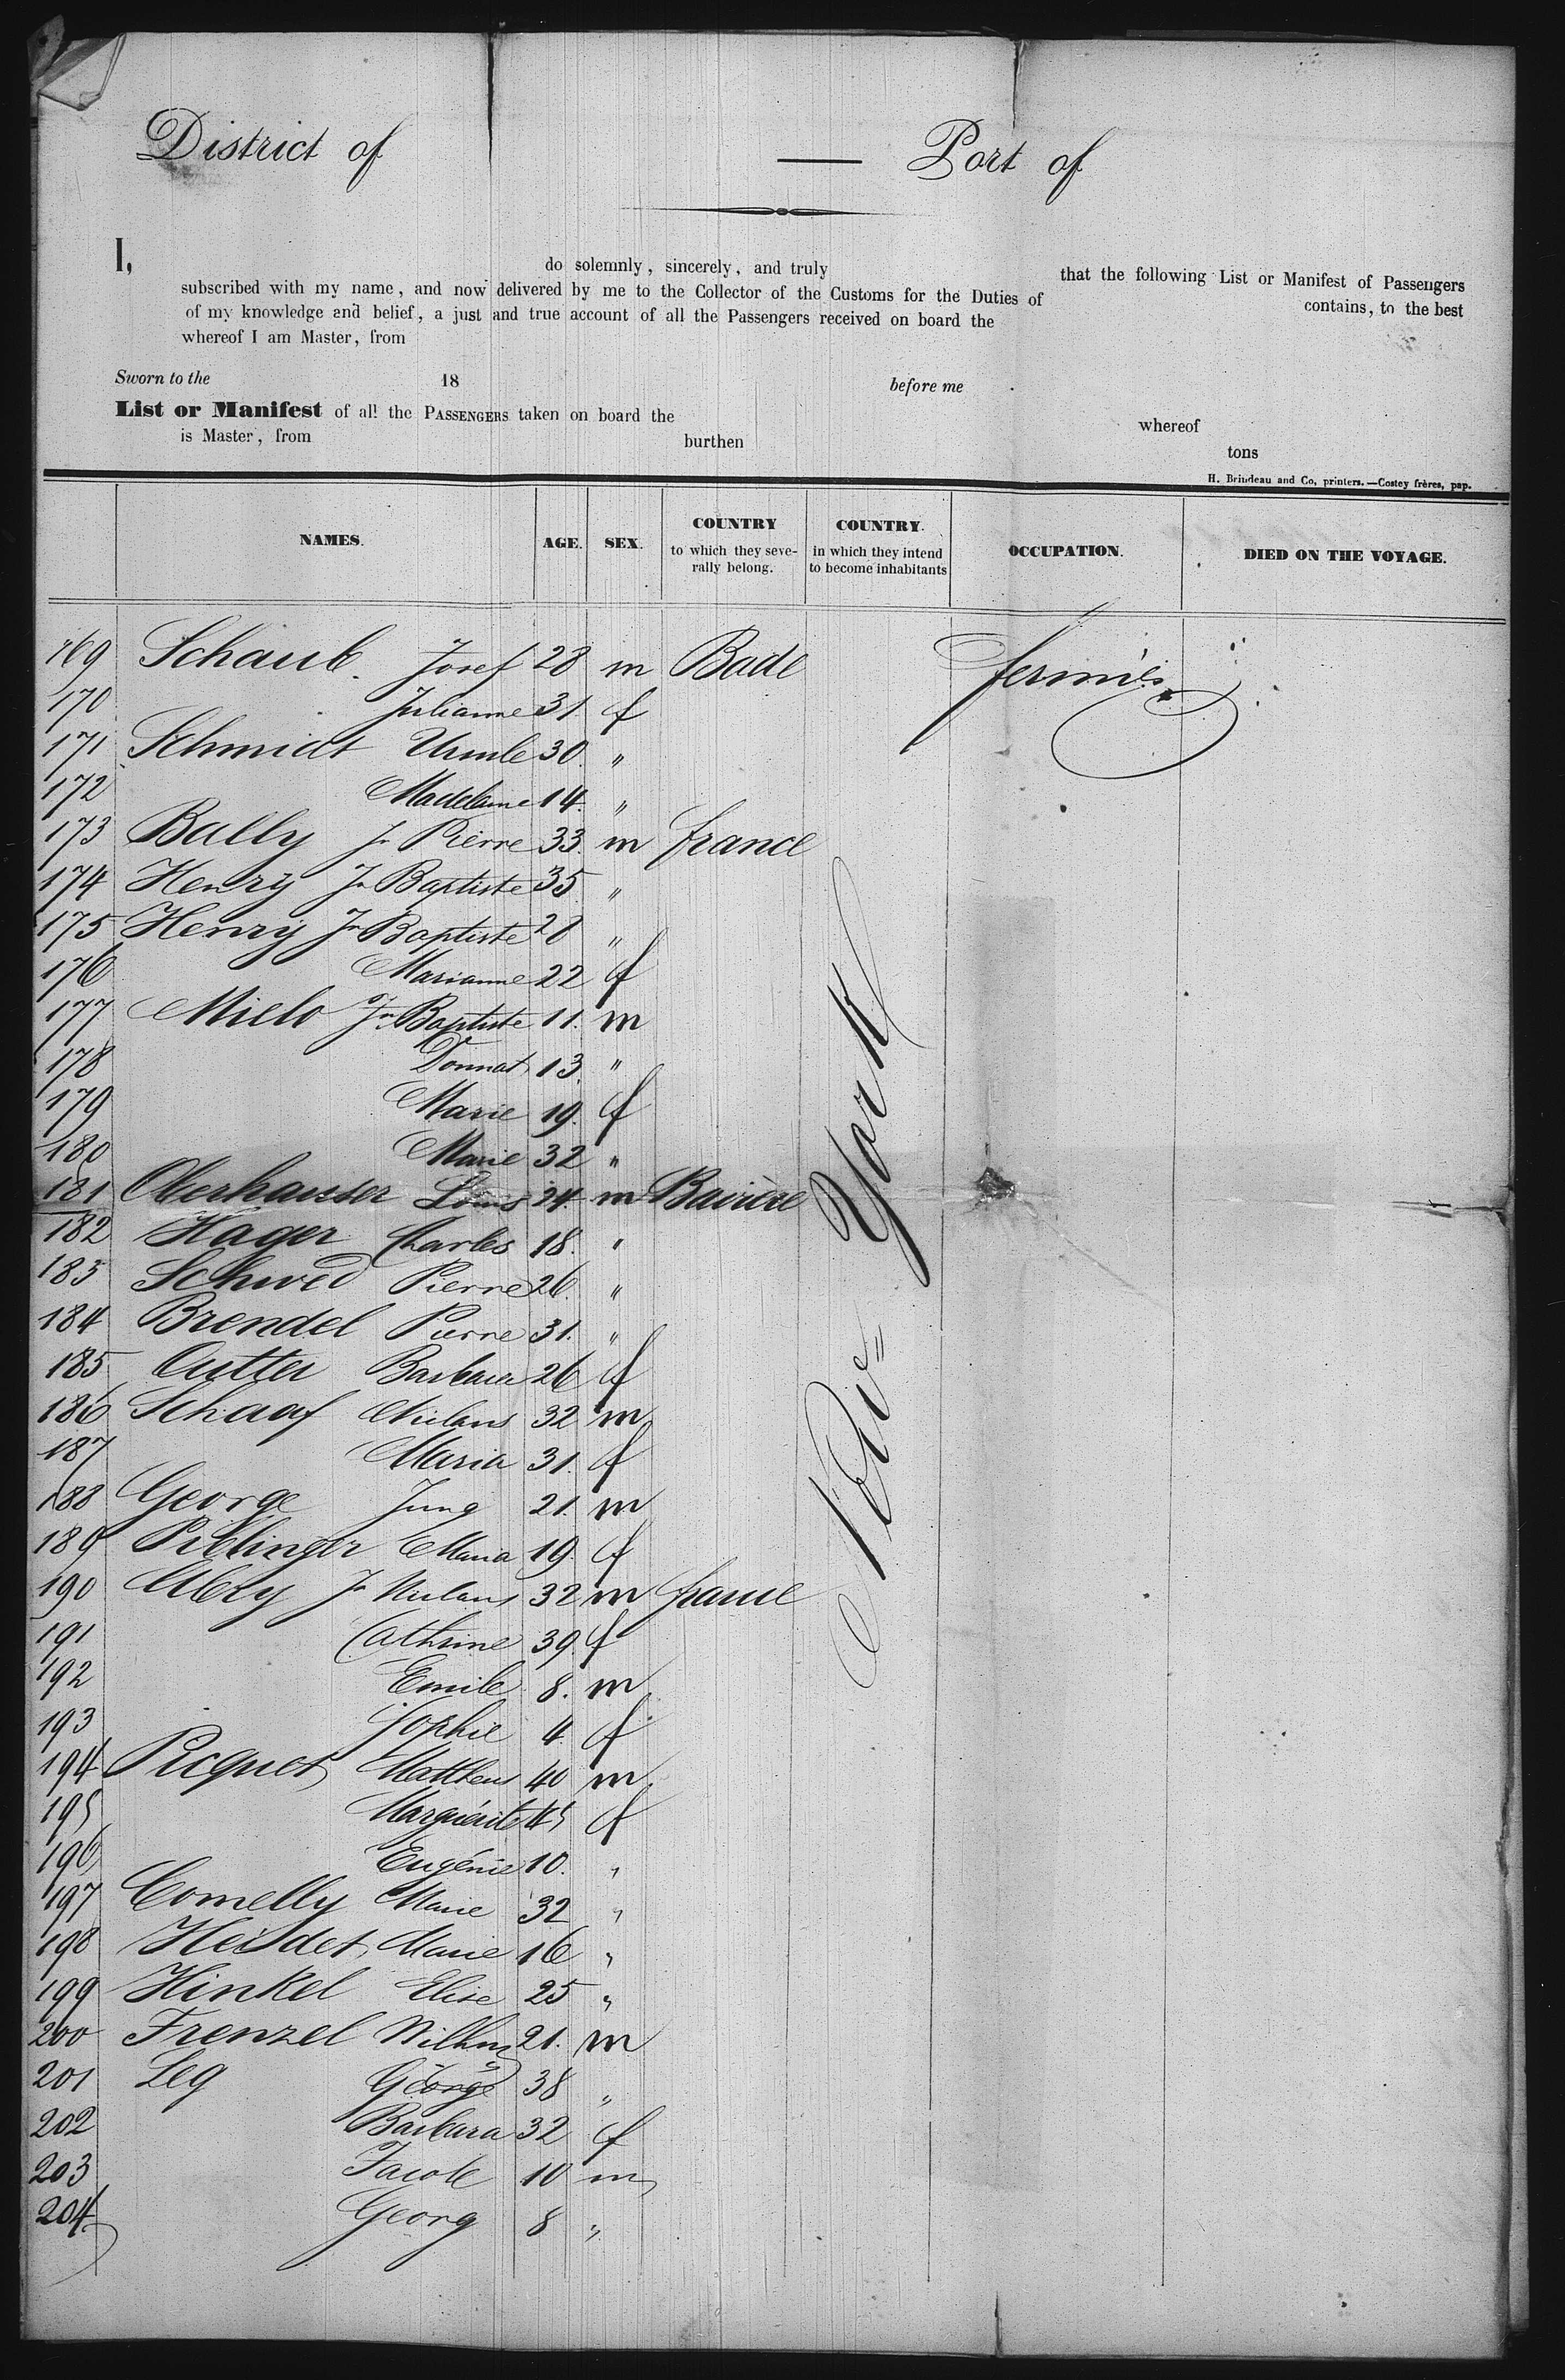 District of — Port of
I, do solemnly, sincerely, and truly that the following List or Manifest of Passengers
subscribed with my name, and now delivered by me to the Collector of the Customs for the Duties of contains, to the best
of my knowledge and belief, a just and true account of all the Passengers received on board the
whereof I am Master, from
Sworn to the 18 before me
List or Manifest of all the PASSENGERS taken on board the whereof
is Master, from burthen tons
H. Brindeau and Co, printers.—Costey frères, pap.
NAMES. AGE. SEX. COUNTRY to which they severally belong. COUNTRY. in which they intend to become inhabitants OCCUPATION. DIED ON THE VOYAGE.
169 Schaub Josef 28 m Bade
170 Julianne 31 f
171 Schmidt 30 "
172 Madelaine 14. "
173 Bally Jn Pierre 33. m france
174 Henry Jn Baptiste 35. "
175 Henry Jn Baptiste 28 "
176 Marianne 22 f
177 Mielo Jn Baptiste 11. m
178 Donnat 13. "
179 Marie 19. f
180 Marie 32 "
181 Oberhauser Louis 24. m Bavière
182 Hager Charles 18. "
183 Schwed Pierre 26. "
184 Brendel Pierre 31. "
185 Barbara 26 f
186 Schaaf Nicolaus 32 m
187 Maria 31. f
188 George Jung 21. m
189 Maria 19. f
190 Jn Nicolaus 32 m france
191 Cathrine 39. f
192 Emile 8. m
193 Sophie 4. f
194 Picquet Mattheus 40 m
195 Marguérite 45 f
196 Eugénie 10. "
197 Comelly Marie 32 "
198 Heidet Marie 16 "
199 Hinkel Elise 25 "
200 Frenzel Wilhm 21. m
201 Leg George 38 "
202 Barbara 32 f
203 Jacob 10 m
204 Georg 8 "
New=York